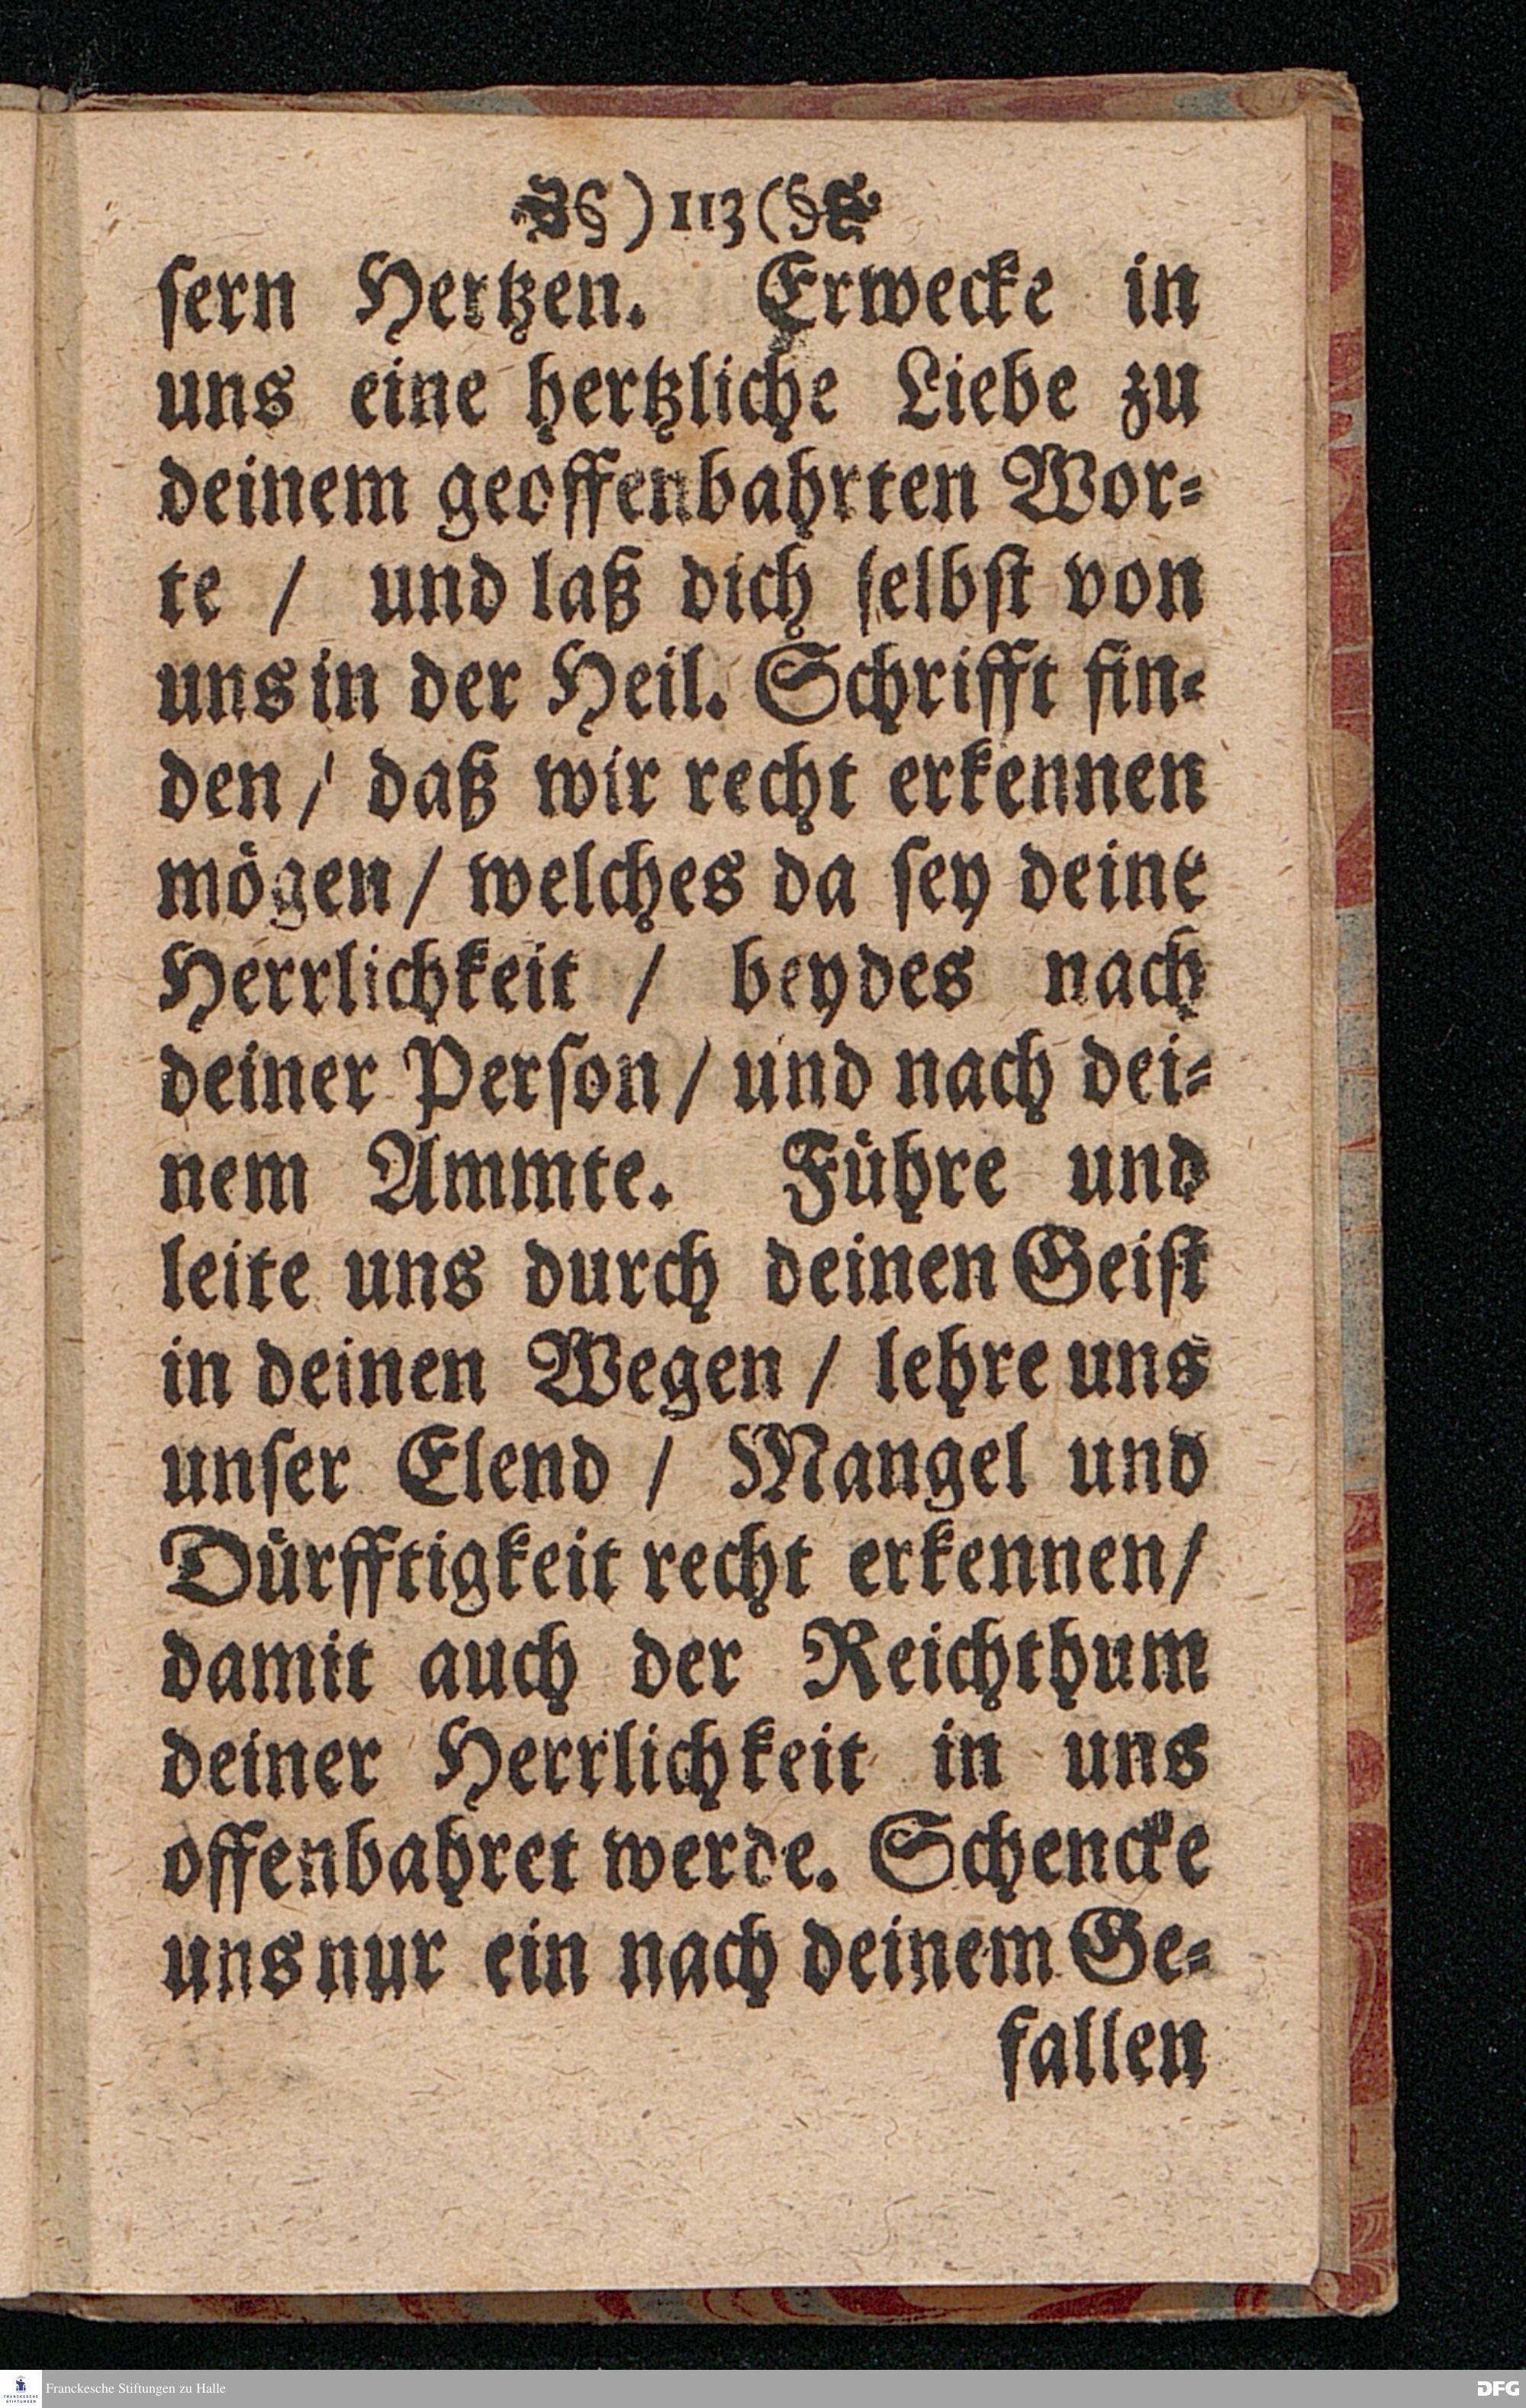 § ) 113 ( §
sern Hertzen. Erwecke in
uns eine hertzliche Liebe zu
deinem geoffenbahrten Wor-
te / und laß dich selbst von
uns in der Heil. Schrifft fin-
den / daß wir recht erkennen
mögen / welches da sey deine
Herrlichkeit / beydes nach
deiner Person / und nach dei-
nem Ammte. Führe und
leite uns durch deinen Geist
in deinen Wegen / lehre uns
unser Elend / Mangel und
Dürfftigkeit recht erkennen /
damit auch der Reichthum
deiner Herrlichkeit in uns
offenbahret werde. Schencke
uns nur ein nach deinem Ge-
fallen
Franckesche Stiftungen zu Halle
DFG